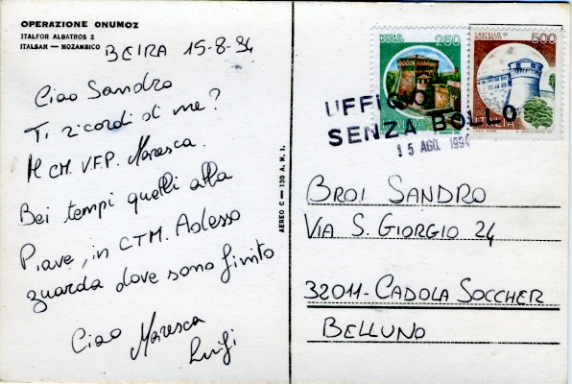 OPERAZIONE ONUMOZ
ITALFOR ALBATROS 2
ITALSAN — MOZAMBICO
BEIRA 15-8-94
Ciao Sandro
Ti ricordi di me?
Il CM. V.F.P. Maresca.
Bei tempi quelli alla
Piave, in CTM. Adesso
guarda dove sono finito
Ciao Maresca
Luigi
AEREO C — 130 A.M.I.
250
500
ITALIA
UFFICIO
SENZA BOLLO
15 AGO. 1994
BROI SANDRO
VIA S. GIORGIO 24
32011-CADOLA SOCCHER
BELLUNO